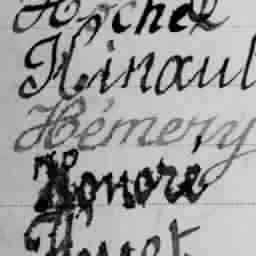 Hochel
Hinaul
Hémery
Honoré